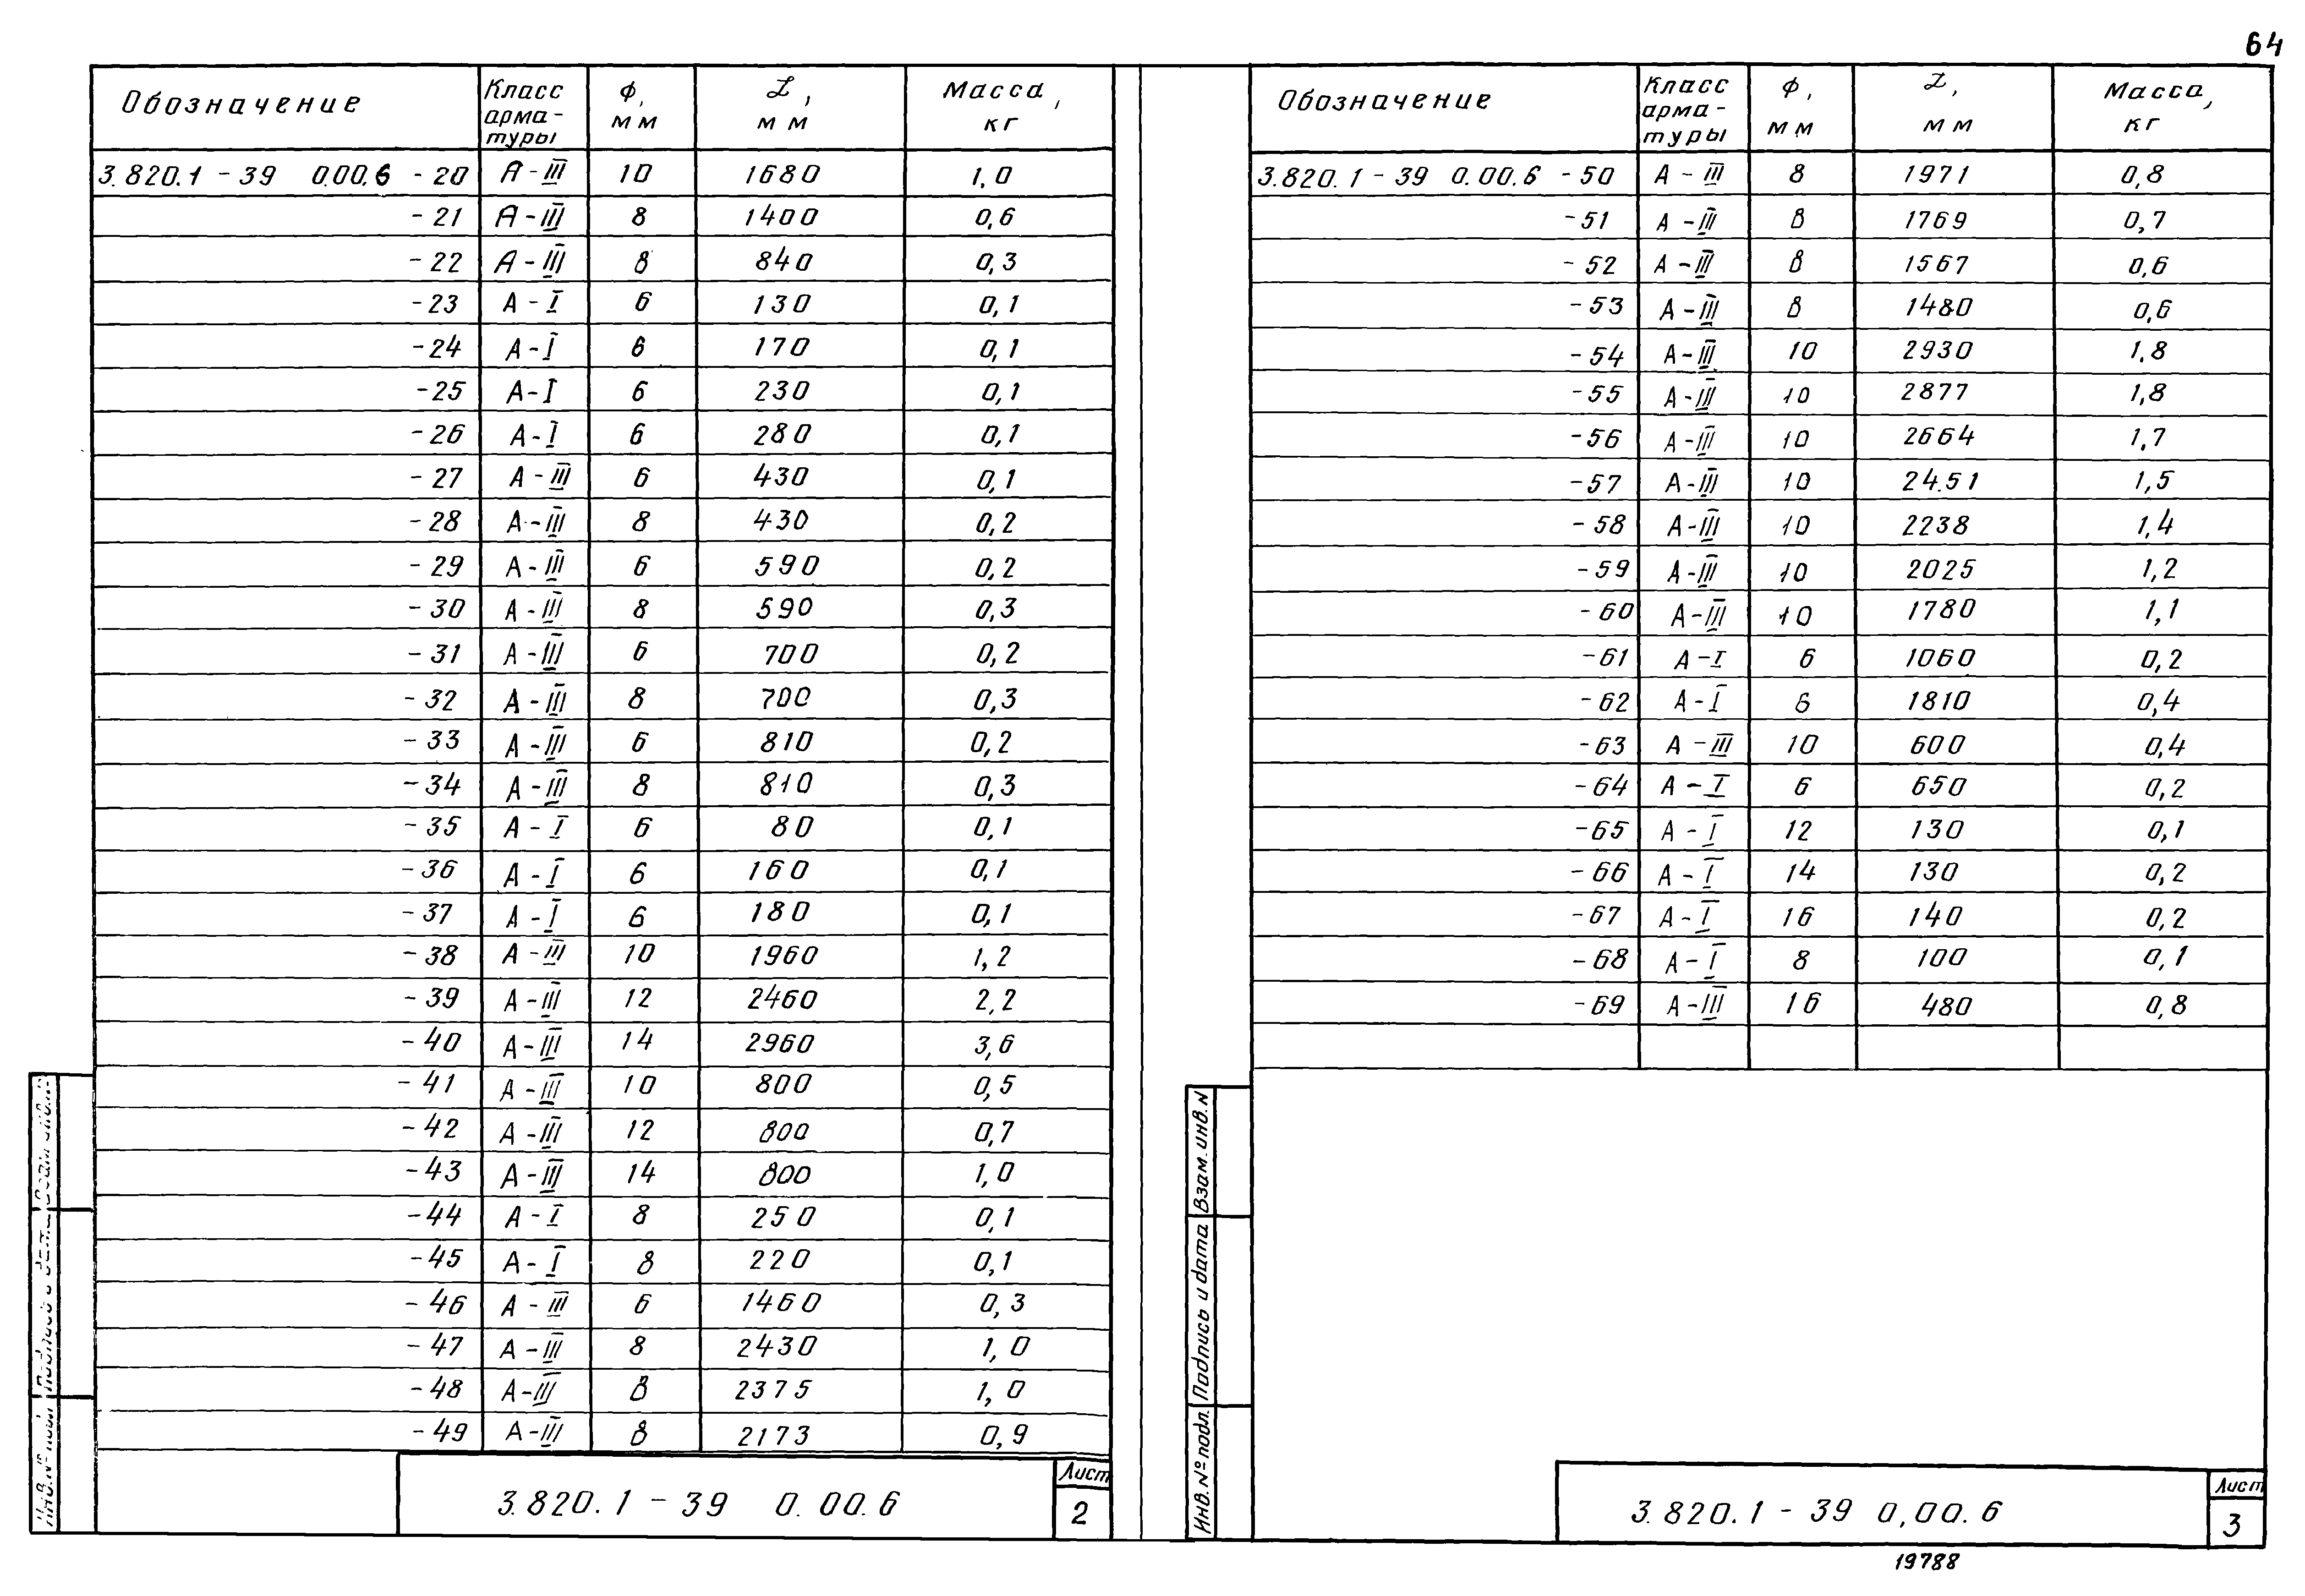 64
Обозначение Класс арма- туры ф, мм L, мм Масса, кг
3.820.1-39 0.00.6 -20 А-III 10 1680 1,0
-21 А-III 8 1400 0,6
-22 А-III 8 840 0,3
-23 А-I 6 130 0,1
-24 А-I 6 170 0,1
-25 А-I 6 230 0,1
-26 А-I 6 280 0,1
-27 А-III 6 430 0,1
-28 А-III 8 430 0,2
-29 А-III 6 590 0,2
-30 А-III 8 590 0,3
-31 А-III 6 700 0,2
-32 А-III 8 700 0,3
-33 А-III 6 810 0,2
-34 А-III 8 810 0,3
-35 А-I 6 80 0,1
-36 А-I 6 160 0,1
-37 А-I 6 180 0,1
-38 А-III 10 1960 1,2
-39 А-III 12 2460 2,2
-40 А-III 14 2960 3,6
-41 А-III 10 800 0,5
-42 А-III 12 800 0,7
-43 А-III 14 800 1,0
-44 А-I 8 250 0,1
-45 А-I 8 220 0,1
-46 А-III 6 1460 0,3
-47 А-III 8 2430 1,0
-48 А-III 8 2375 1,0
-49 А-III 8 2173 0,9
3.820.1-39 0.00.6
Лист
2
Обозначение Класс арма- туры ф, мм L, мм Масса, кг
3.820.1-39 0.00.6 -50 А-III 8 1971 0,8
-51 А-III 8 1769 0,7
-52 А-III 8 1567 0,6
-53 А-III 8 1480 0,6
-54 А-III 10 2930 1,8
-55 А-III 10 2877 1,8
-56 А-III 10 2664 1,7
-57 А-III 10 24.51 1,5
-58 А-III 10 2238 1,4
-59 А-III 10 2025 1,2
-60 А-III 10 1780 1,1
-61 А-I 6 1060 0,2
-62 А-I 6 1810 0,4
-63 А-III 10 600 0,4
-64 А-I 6 650 0,2
-65 А-I 12 130 0,1
-66 А-I 14 130 0,2
-67 А-I 16 140 0,2
-68 А-I 8 100 0,1
-69 А-III 16 480 0,8
Инв. № подл. Подпись и дата Взам. инв. N
3.820.1-39 0,00.6
Лист
3
19788